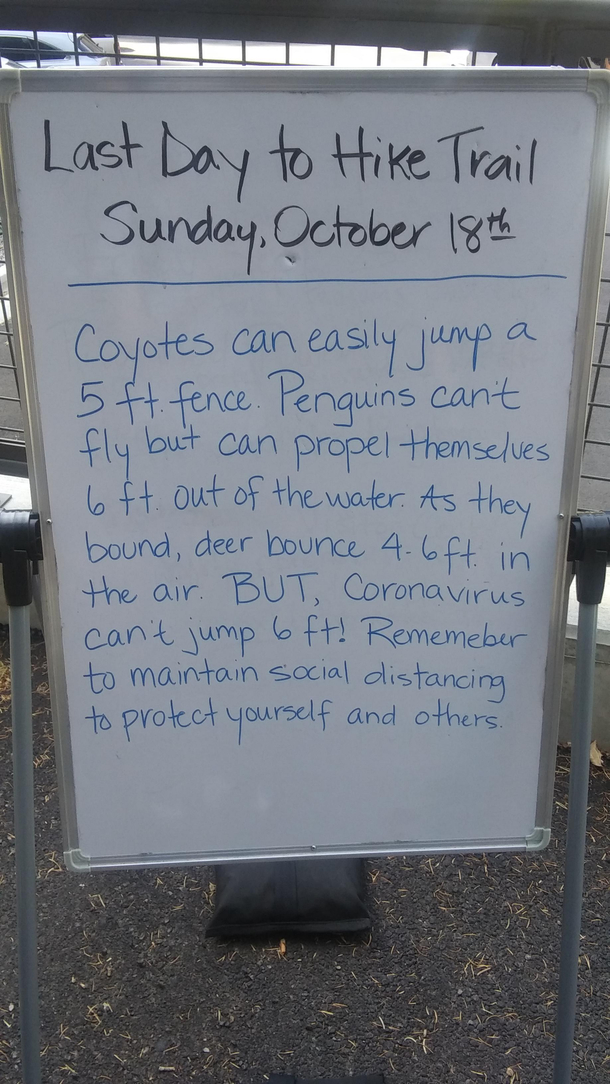 Last Day to Hike Trail
Sunday, October 18th
Coyotes can easily jump a
5 ft. fence. Penguins can't
fly but can propel themselves
6 ft. out of the water. As they
bound, deer bounce 4-6ft. in
the air. BUT, Coronavirus
can't jump 6 ft! Rememeber
to maintain social distancing
to protect yourself and others.